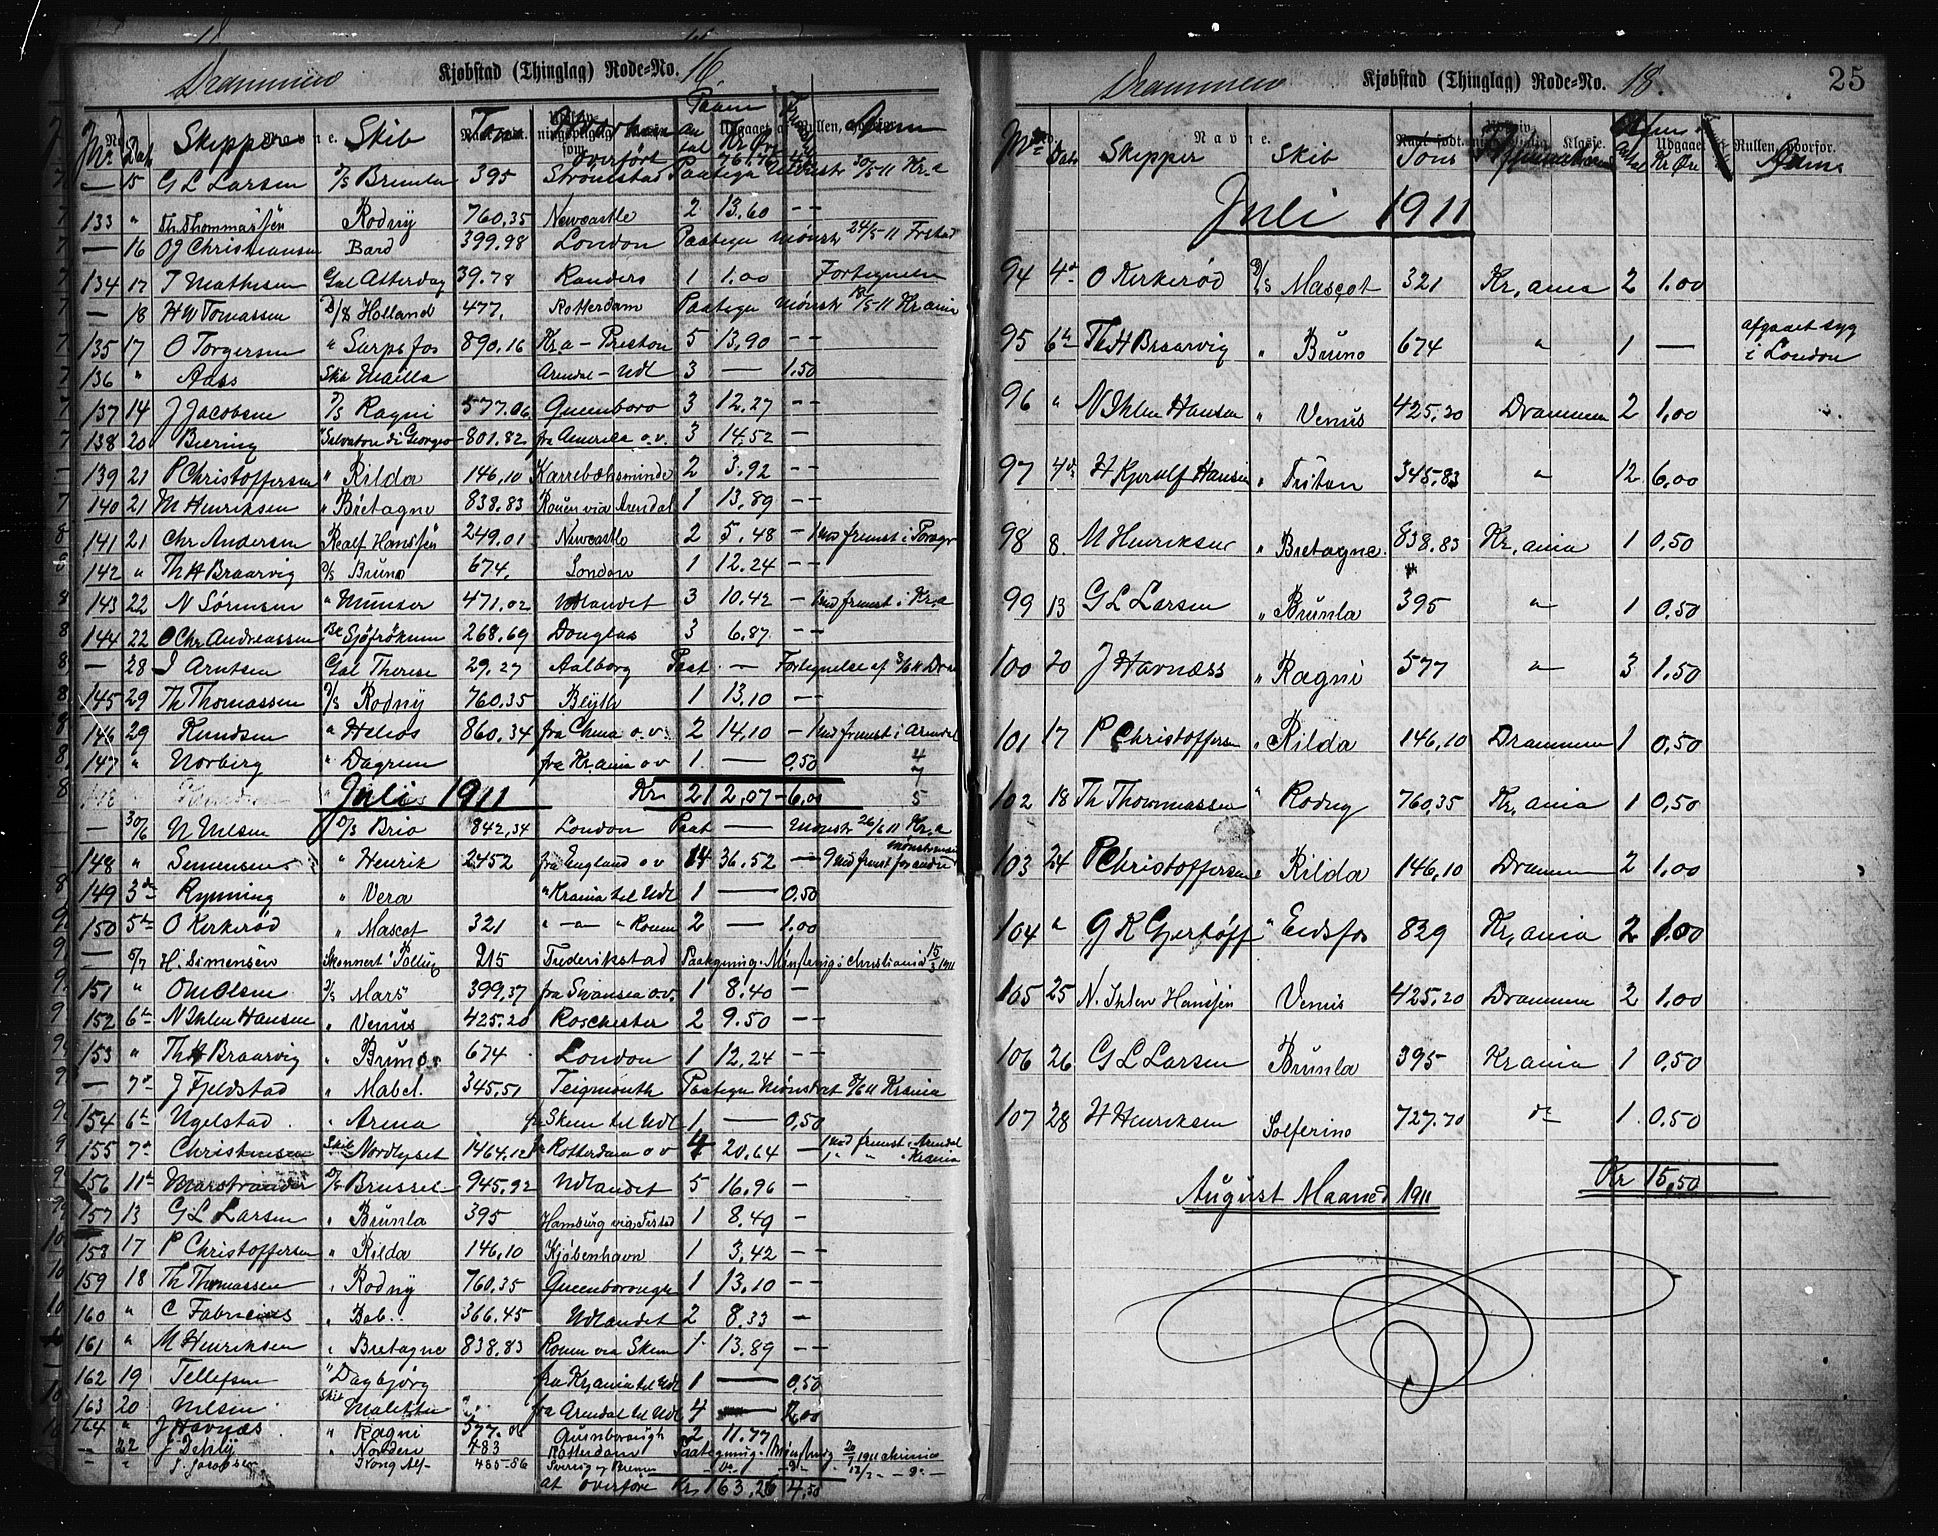 Drammen Kjøbstad (Thinglag) Rode-No. 16.
No. Dat Skipper Skib Tons
Overført
— 15 G L Larsen D/S Brunla 395 Strømstad Paategn Mønstr 30/5 11 Kr.a
133 " Th. Thommassen Rodny 760,35 Newcastle 2 13.60 — —
— 16 O J Christiansen Bard 399.98 London Paategn Mønstr 24/5 11 Frstad
134 17 T Mathisen Gal Alterdag 39.78 Randers 1 1.00 Fortegnelse
— 18 H W Tomassen D/S Holland 477. Rotterdam Paategn Mønstr 18/5 11 Krania
135 17 O Torgersen " Sarpsfos 890.16 Kr.a – Preston 5 13.90 — —
136 " Aass Skib Mailla Arendal – Udl 3 — 1.50
137 14 J Jacobsen D/S Ragni 577.06 Queenboro 3 12.27 — —
138 20 Biering " Salvatore di Georgeo 801.82 fra Amerika o.v. 3 14.52 — —
139 21 P Christoffersen " Rilda 146.10 Karrebæksminde 2 3.92 — —
140 21 M Henriksen " Bretagne 838.83 Rouen via Arendal 1 13.89 — —
141 21 Chr Andersen Roalf Hanssen 249.01 Newcastle 2 5.48 — 1 md fremst i Porsgr
142 " Th H Braarvig D/S Bruno 674. London 1 12.24 — —
143 22 N Sörensen " Munser 471,02 Udlandet 3 10.42 — 1 md fremst i Kr.a
144 22 O Chr Andreassen Bk Sjöfröknen 268.69 Douglas 3 6.87 — —
— 28 I Arntsen Gal Therese 29.27 Aalborg Paat. — Fortegnelse af
145 29 Th Thomassen D/S Rodny 760.35 Blyth 1 13.10 — —
146 29 Knudsen " Helios 860.34 fra China o.v. 2 14.10 — 1 md fremst i Arendal
147 " Norberg " Dagrun fra Kr.ania o v 1 — 0,50
Juli 1911 Kr 212,07 – 6,00
— 30/6 N Nilsen D/S Brio 842,34 London Paat — Mønstr 26/6 11 Kr.a
148 " Semensen " Henrik 2452 fra England o v 14 36.52 — 9 md fremst for andre mønstrinsr
149 3die Rynning " Vera " Krania til Udl 1 — 0.50
150 5te O Kerkerød " Mascot 321 " — " — " Rouen 2 — 1.00
— 5/7 H. Simensen Skonnert Pollux 215 Frederikstad Paategning. Mønstring i Christiania 15/3 1911
151 " O M Olsen D/S Mars 399,37 fra Swansea o.v. 1 8.40 — —
152 6te N Ihlen Hansen " Venus 425.20 Roschester 2 9.50 — —
153 " Th H Braarvig " Bruno 674 London 1 12.24 — —
— 7de J Fjeldstad " Mabel. 345,51 Teigmouth Paategn Mønstret 8/6 11 Krania
154 6te Ugelstad " Arma fr Skien til Udl 1 — 0,50
155 7de Christensen Skib Nordlyset 1464.12 fr Rotterdam o v 4 20.64 — 1 md fremst i Arendal
1 " " " Krania
156 11te Marstrander D/S Brussel 945.92 Udlandet 5 16.96 — —
157 13 G L Larsen " Brunla 395 Hamburg via Frstad 1 8.49 — —
158 17 P Christoffersen " Rilda 146.10 Kjøbenhavn 1 3.42 — —
159 18 Th Thomassen " Rodny 760.35 Queenborough 1 13.10 — —
160 " C Fabricius " Bob. 366.45 Udlandet 2 8.33 —
161 " M Henriksen " Bretagne 838.83 Rouen via Skien 1 13.89 — —
162 19 Tellefsen " Dagbjørg fra Kr.ania til Udl 1 — 0,50
163 20 Nilsen Skib fra Arendal til Udl 4 — 2,00
164 " J Havnæs " Ragni 577.06 Quinborough 2 11.77
— 22 " Norden 483 Rotterdam Paategning. Mønstring
— " J. Jacobsen Kong Alf 485-86 Sverrig og Bremen
at overføre Kr. 163.26 4,50
Drammen Kjøbstad (Thinglag) Rode-No. 18. 25
No Dato Skipper Skib Tons Antal Kr Øre Anm
Juli 1911
94 4de O Kerkerød D/S Mascot 321 Kr,ania 2 1.00
95 6te Th H Braarvig " Bruno 674 " 1 — afgaaet syg i London
96 " N Ihlen Hansen " Venus 425,20 Drammen 2 1,00
97 4de H Kjerulf Hansen " Triton 345.83 " 12 6,00
98 8. M Henriksen " Bretagne. 838.83 Kr,ania 1 0,50
99 13 G L Larsen " Brunla 395 " 1 0,50
100 20 J Havnæss " Ragni 577 " 3 1,50
101 17 P Christoffersen " Rilda 146,10 Drammen 1 0,50
102 18 Th Thommassen " Rodny 760,35 Kr,ania 1 0,50
103 24 P Christoffersen " Rilda 146,10 Drammen 2 1.00
104 " G K Gjertöff " Eidsfos 829 Kr,ania 2 1.00
105 25 N. Ihlen Hanssen Venus 425.20 Drammen 2 1.00
106 26 G L Larsen Brunla 395 Krania 1 0,50
107 28 H Henriksen Solferino 727.70 do 1. 0,50
Kr 15,50
August Maaned 1911